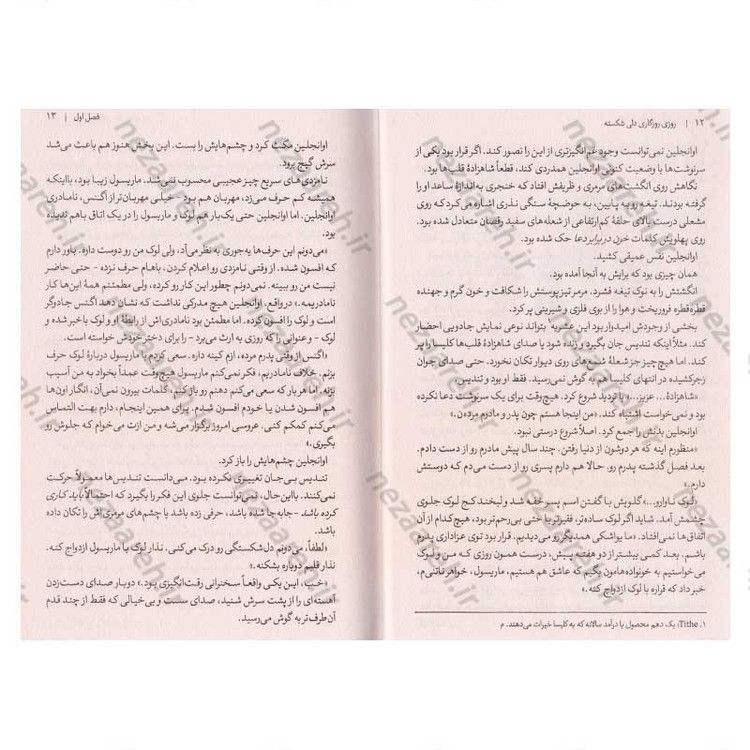 ۱۲ | روزی روزگاری دلی شکسته
اوانجلین نمی‌توانست وجود غم‌انگیزتری از این را تصور کند. اگر قرار بود یکی از
سرنوشت‌ها با وضعیت کنونی اوانجلین همدردی کند، قطعاً شاهزادهٔ قلب‌ها بود.
نگاهش روی انگشت‌های مرمری و ظریفش افتاد که خنجری به‌اندازهٔ ساعد او را
گرفته بودند. تیغه رو به پایین، به حوضچهٔ سنگی نذری اشاره می‌کرد که روی
مشعلی درست بالای حلقهٔ کم‌ارتفاعی از شعله‌های سفید رقصان متعادل شده بود.
روی پهلویش کلمات خون در برابر دعا حک شده بود.
اوانجلین نفس عمیقی کشید.
همان چیزی بود که برایش به آنجا آمده بود.
انگشتش را به نوک تیغه فشرد. مرمر تیز پوستش را شکافت و خون گرم و جهنده
قطره‌قطره فروریخت و هوا را از بوی فلزی و شیرینی پر کرد.
بخشی از وجودش امیدوار بود این عشریه۱ بتواند نوعی نمایش جادویی احضار
کند. مثلاً اینکه تندیس جان بگیرد و زنده شود یا صدای شاهزادهٔ قلب‌ها کلیسا را پر
کند. اما هیچ چیز جز شعلهٔ شمع‌های روی دیوار تکان نخورد. حتی صدای جوان
زجرکشیده در انتهای کلیسا هم به گوش نمی‌رسید. فقط او بود و تندیس.
«شاهزادهٔ... عزیز...» با تردید شروع کرد. هیچ‌وقت برای یک سرنوشت دعا نکرده
بود و نمی‌خواست اشتباه کند. «من اینجا هستم چون پدر و مادرم مرده‌ن.»
اوانجلین بدنش را جمع کرد. اصلاً شروع درستی نبود.
«منظورم اینه که هر دوشون از دنیا رفتن. چند سال پیش مادرم رو از دست دادم.
بعد فصل گذشته پدرم رو. حالا هم دارم پسری رو از دست می‌دم که دوستش
دارم.»
«لوک ناوارو...» گلویش با گفتن اسم پسر خفه شد و لبخند کج لوک جلوی
چشمش آمد. شاید اگر لوک ساده‌تر، فقیرتر یا حتی بی‌رحم‌تر بود، هیچ‌کدام از آن
اتفاق‌ها نمی‌افتاد. «ما یواشکی همدیگر رو می‌دیدیم. قرار بود توی عزاداری پدرم
باشم. بعد کمی بیشتر از دو هفته پیش، درست همون روزی که من و لوک
می‌خواستیم به خونواده‌هامون بگیم که عاشق هم هستیم، ماریسول، خواهر ناتنی‌م،
خبر داد که قراره با لوک ازدواج کنه.»
۱. Tithe: یک دهم محصول یا درآمد سالانه که به کلیسا خیرات می‌دهند. م
فصل اول | ۱۳
اوانجلین مکث کرد و چشم‌هایش را بست. این بخش هنوز هم باعث می‌شد
سرش گیج برود.
نامزدی‌های سریع چیز عجیبی محسوب نمی‌شد. ماریسول زیبا بود، بااینکه
همیشه کم حرف می‌زد، مهربان هم بود - خیلی مهربان‌تر از اگنس، نامادری
اوانجلین. اما اوانجلین حتی یک‌بار هم لوک و ماریسول را در یک اتاق باهم ندید،
بود.
«می‌دونم این حرف‌ها یه‌جوری به نظر می‌آد، ولی لوک من رو دوست داره. باور دارم
که افسون شده. از وقتی نامزدی رو اعلام کردن، باهام حرف نزده - حتی حاضر
نیست من رو ببینه. نمی‌دونم چطور این کار رو کرده، ولی مطمئنم همهٔ این‌ها کار
نامادریمه.» درواقع، اوانجلین هیچ مدرکی نداشت که نشان دهد اگنس جادوگر
است و لوک را افسون کرده. اما مطمئن بود نامادری‌اش از رابطهٔ او و لوک باخبر شده و
لوک - و عنوانی را که روزی به ارث می‌برد - را برای دختر خودش خواسته است.
«اگنس از وقتی پدرم مرده، ازم کینه داره. سعی کردم با ماریسول دربارهٔ لوک حرف
بزنم. خلاف نامادریم، فکر نمی‌کنم ماریسول هیچ‌وقت عمداً بخواد به من آسیب
بزنه. اما هر بار که سعی می‌کنم دهنم رو باز کنم، کلمات بیرون نمی‌آن، انگار اون‌ها
هم افسون شدن یا خودم افسون شدم. برای همین اینجام، دارم بهت التماس
می‌کنم کمکم کنی. عروسی امروز برگزار می‌شه و من ازت می‌خوام که جلوش رو
بگیری.»
اوانجلین چشم‌هایش را باز کرد.
تندیس بی‌جان تغییری نکرده بود. می‌دانست تندیس‌ها معمولاً حرکت
نمی‌کنند. بااین‌حال، نمی‌توانست جلوی این فکر را بگیرد که احتمالاً باید کاری
کرده باشد - جابه‌جا شده باشد، حرفی زده باشد یا چشم‌های مرمری‌اش را تکان داده
باشد.
«لطفاً، می‌دونم دل‌شکستگی رو درک می‌کنی. نذار لوک با ماریسول ازدواج کنه.
نذار قلبم دوباره بشکنه.»
«خب، این یکی واقعاً سخنرانی رقت‌انگیزی بود.» دو بار صدای دست‌زدن
آهسته‌ای را از پشت سرش شنید، صدای سست و بی‌خیالی که فقط از چند قدم
آن‌طرف‌تر به گوش می‌رسید.
nezaareh.ir